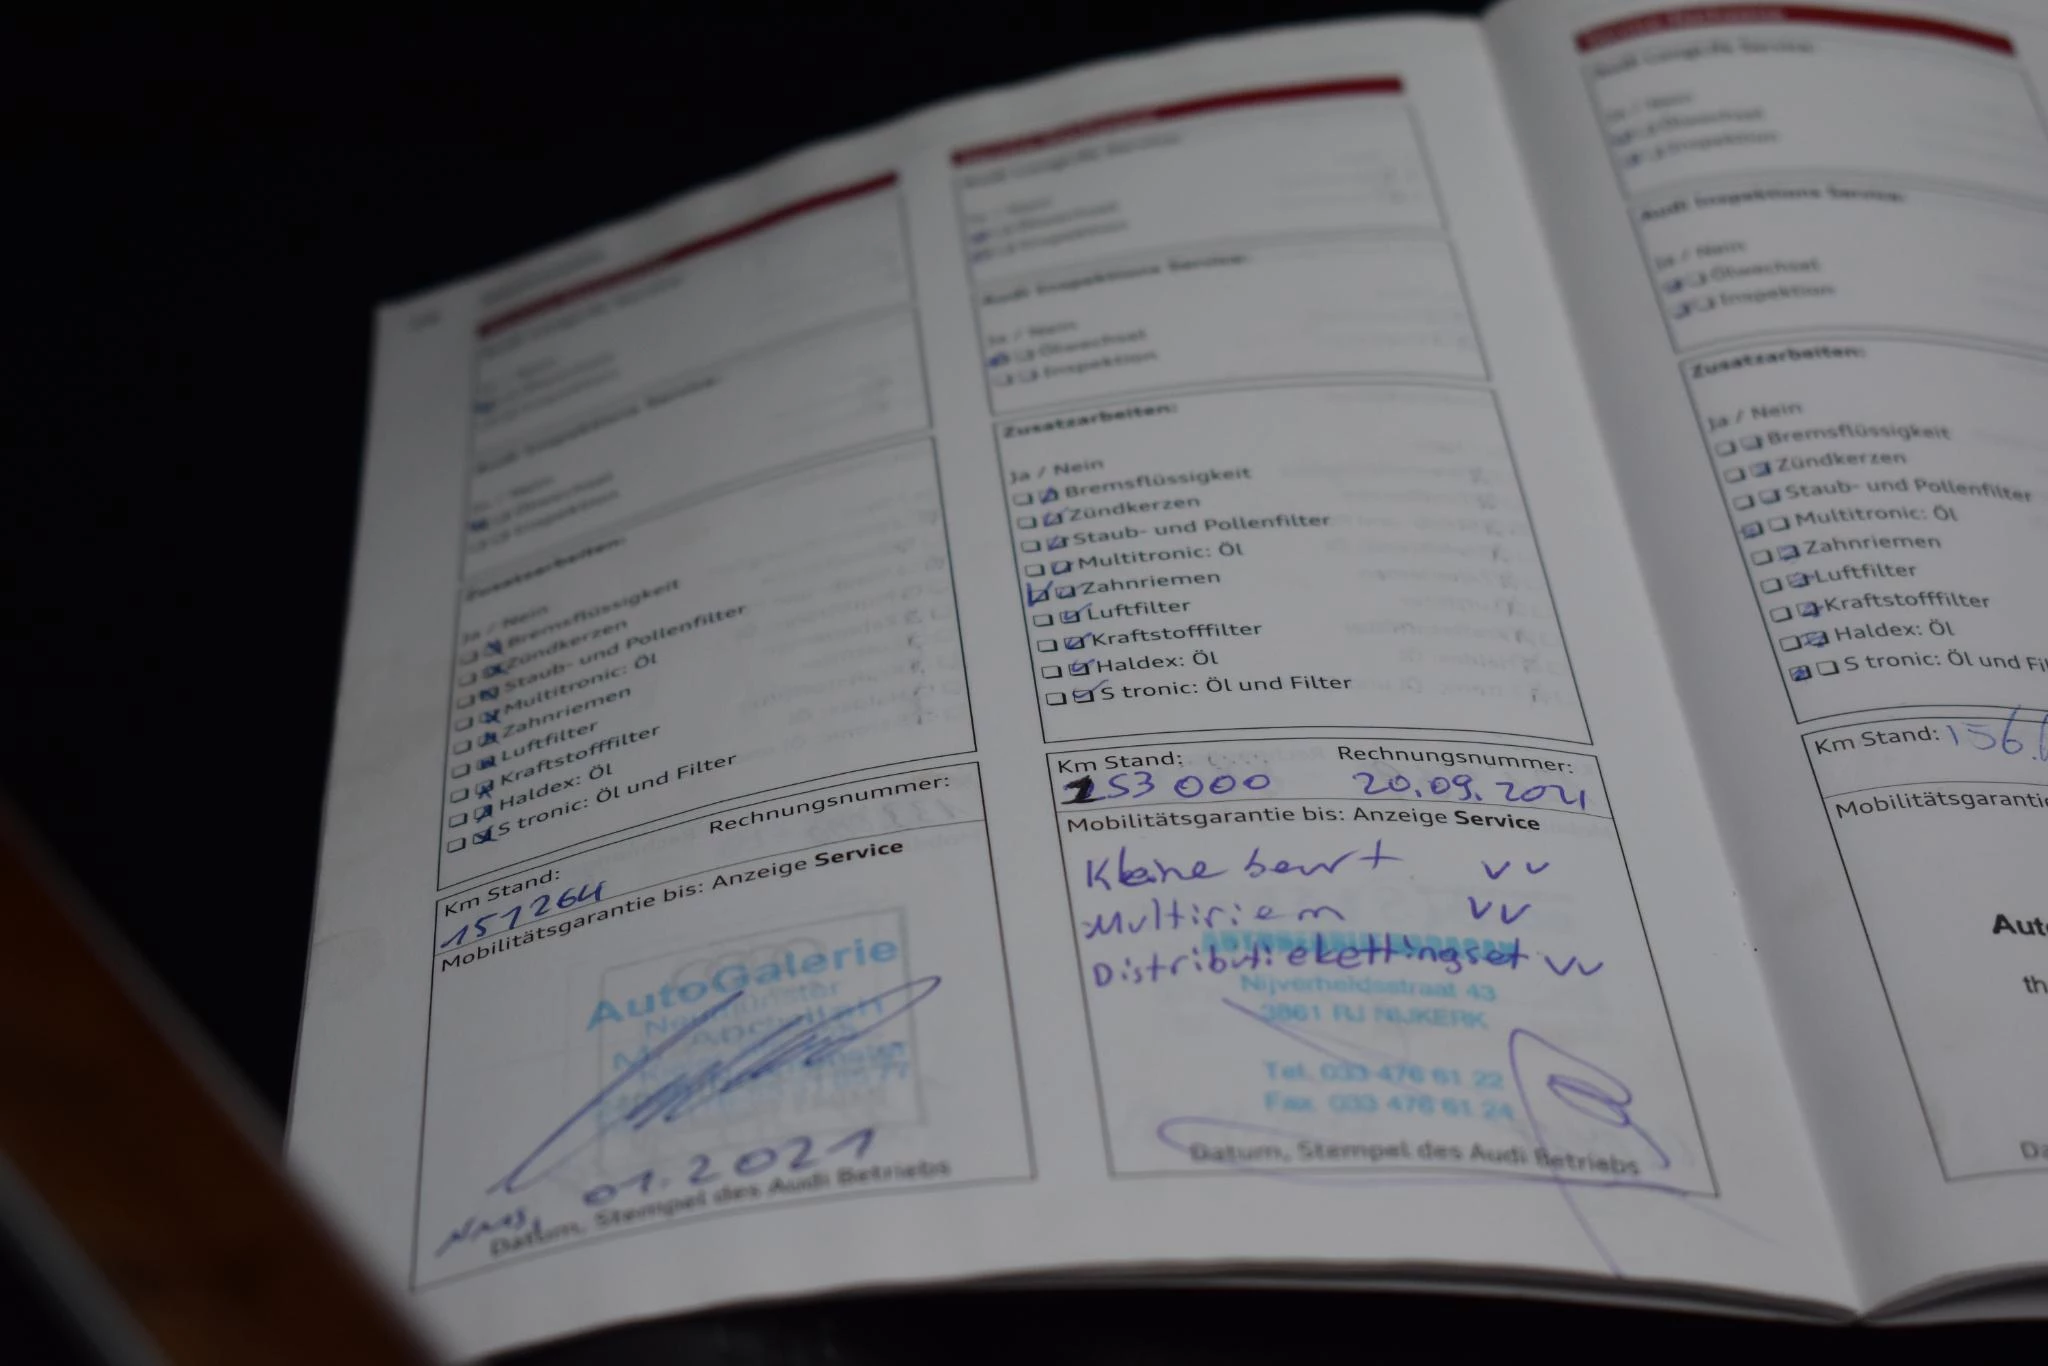 Zusatzarbeiten:
Ja / Nein
Bremsflüssigkeit
Zündkerzen
Staub- und Pollenfilter
Multitronic: Öl
Zahnriemen
Luftfilter
Kraftstofffilter
Haldex: Öl
S tronic: Öl und Filter
Km Stand: Rechnungsnummer:
151264
Mobilitätsgarantie bis: Anzeige Service
AutoGalerie
01.2021
Datum, Stempel des Audi Betriebs
Audi Inspektions Service:
Ja / Nein
Ölwechsel
Inspektion
Zusatzarbeiten:
Ja / Nein
Bremsflüssigkeit
Zündkerzen
Staub- und Pollenfilter
Multitronic: Öl
Zahnriemen
Luftfilter
Kraftstofffilter
Haldex: Öl
S tronic: Öl und Filter
Km Stand: Rechnungsnummer:
153 000 20.09.2021
Mobilitätsgarantie bis: Anzeige Service
Kleine beurt vv
Multiriem vv
Distributiekettingset vv
Nijverheidsstraat 43
3861 RJ NIJKERK
Tel. 033 476 61 22
Fax 033 476 61 24
Datum, Stempel des Audi Betriebs
Audi Inspektions Service:
Ja / Nein
Ölwechsel
Inspektion
Zusatzarbeiten:
Ja / Nein
Bremsflüssigkeit
Zündkerzen
Staub- und Pollenfilter
Multitronic: Öl
Zahnriemen
Luftfilter
Kraftstofffilter
Haldex: Öl
S tronic: Öl und Fi
Km Stand: 156.
Mobilitätsgarantie
Aut
th
Da